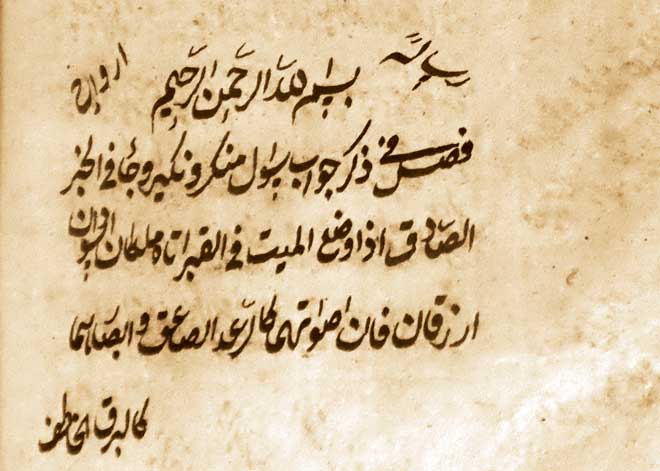 رساله بسم الله الرحمن الرحيم ارواح
فصل في ذكر جواب سوال منكر و نكير وجأ في الخبر
الصادق اذا وضع الميت في القبر اتاه ملكان اسودان
ارزقان فان اصواتهما كالرعد الصاعق و ابصارهما
كالبرق الخاطف